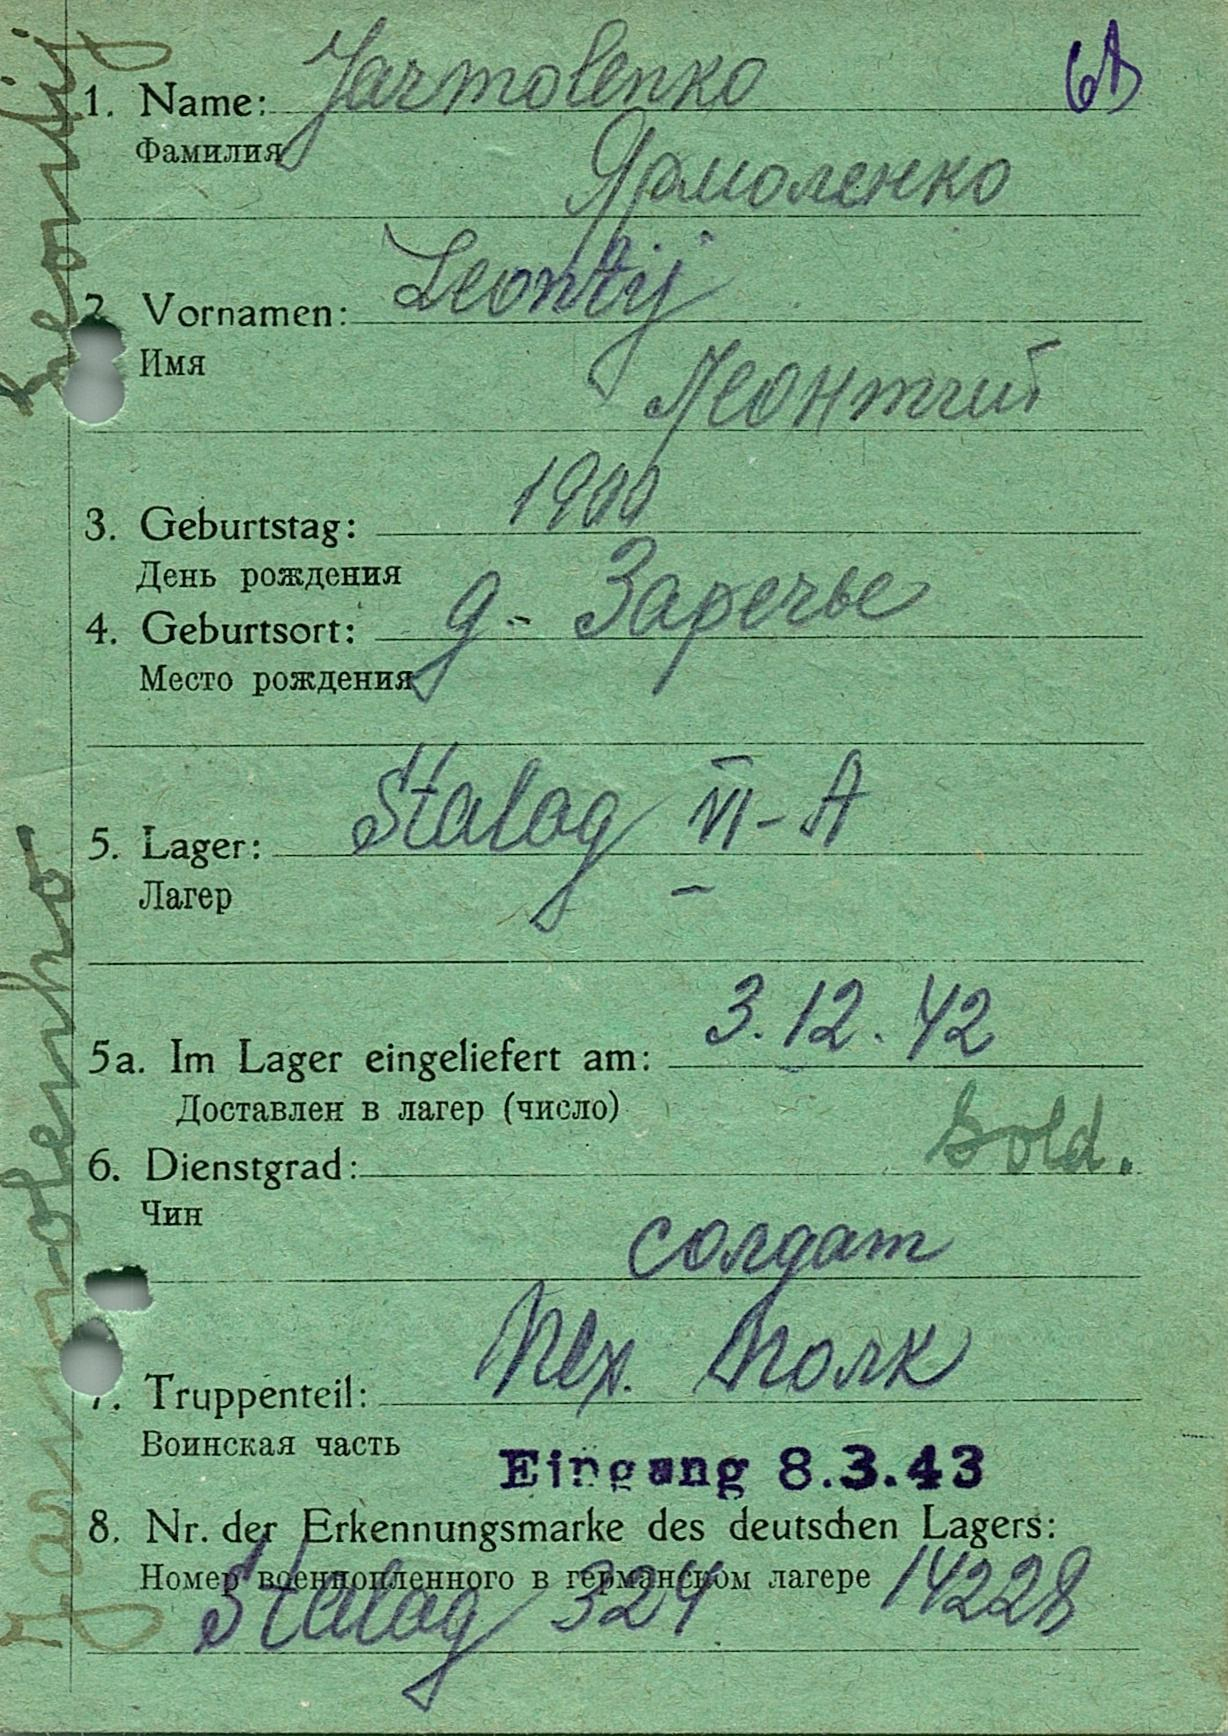 Jarmolenko Leontij
6A
1. Name: Jarmolenko
Фамилия
Ярмоленко
2. Vornamen: Leontij
Имя
Леонтий
3. Geburtstag: 1900
День рождения
4. Geburtsort: д. Заречье
Место рождения
5. Lager: Stalag VI-A
Лагер
5a. Im Lager eingeliefert am: 3.12.42
Доставлен в лагер (число)
6. Dienstgrad: Sold.
Чин
солдат
7. Truppenteil: Пех. полк
Воинская часть
Eingang 8.3.43
8. Nr. der Erkennungsmarke des deutschen Lagers:
Номер военнопленного в германском лагере 14228
Stalag 324